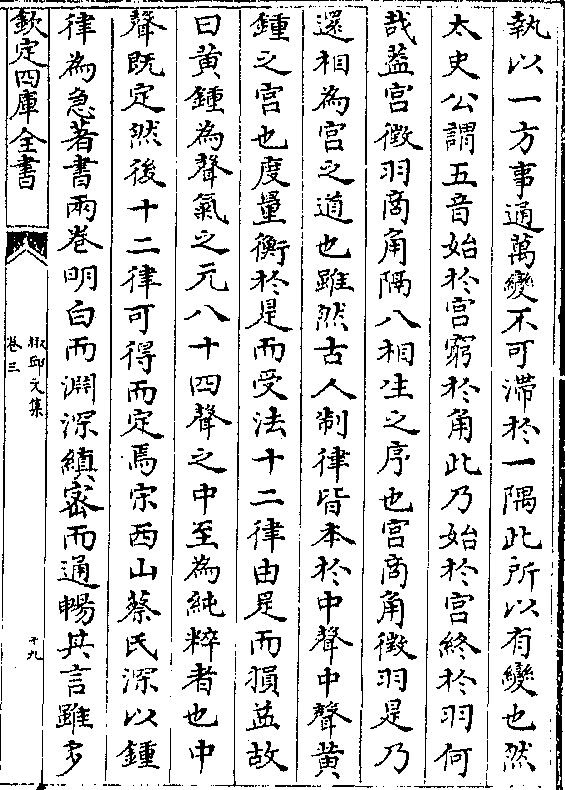 執以一方事通萬變不可滯於一隅此所以有變也然
太史公謂五音始於宫窮於角此乃始於宫終於羽何
哉葢宫徴羽商角隔八相生之序也宫商角徴羽是乃
還相為宫之道也雖然古人制律皆本於中聲中聲黄
鍾之宫也度量衡於是而受法十二律由是而損益故
曰黄鍾為聲氣之元八十四聲之中至為純粹者也中
聲既定然後十二律可得而定焉宗西山蔡氏深以鍾
律為急著書兩卷明白而淵深縝密而通暢其言雖多
欽定四庫全書
椒邱文集
卷三
十九